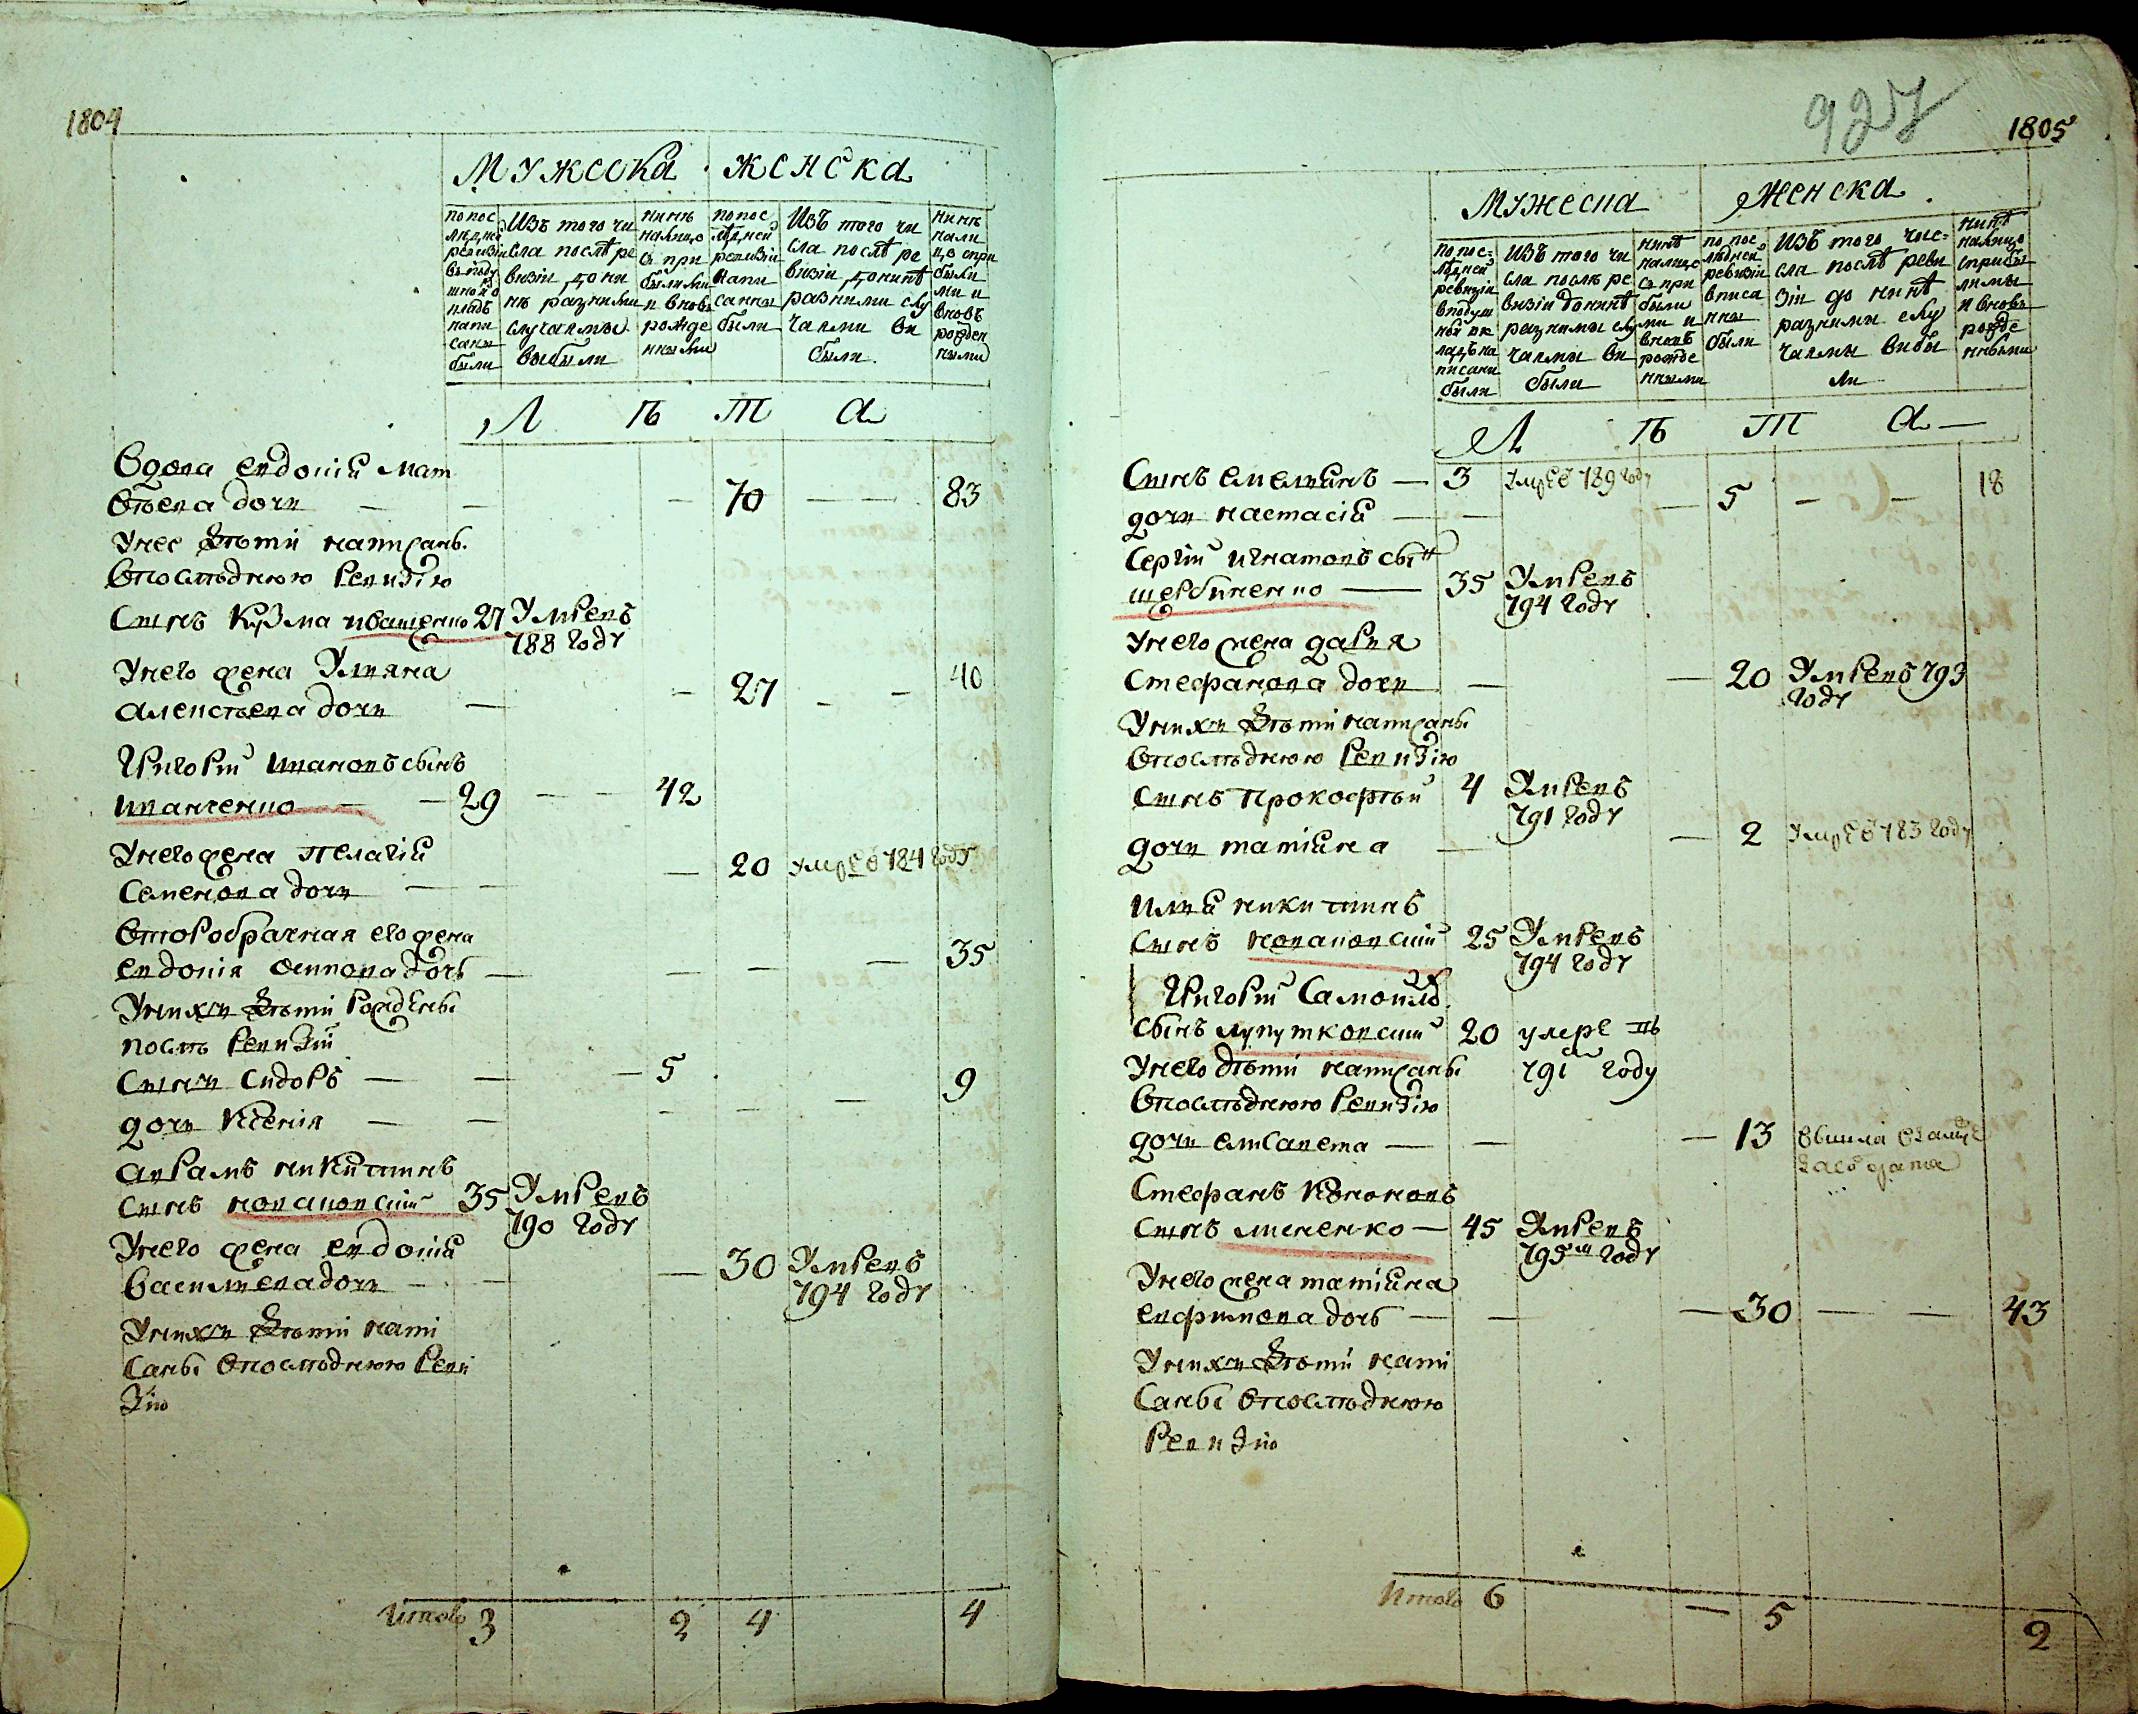 1804
Мужеска женска
по пос
лѣдней
ревизіи
въ поду
шной о
кладъ
напи
саны
были
Изъ того чи
сла послѣ ре
визіи до ни
нѣ разними
случаями
выбыли
нинѣ
налицо
съ при
былими
и вновь
рожде
нными
по пос
лѣдней
ревизіи
напи
саны
были
Изъ того чи
сла послѣ ре
визіи до нинѣ
разними слу
чаями ви
были
нинѣ
нали
цо спри
были
ми и
вновъ
рожден
ными
Л ѣ т а
Вдова евдокій мат
вѣева дочь — — — 70 — — 83
Унее дѣти написанъ
впослѣднюю ревизію
Синъ Кузма иващенко 27 Умревъ
788 году
Унего жена Уляна
алексѣева дочь — — 27 — — 40
Григорій ивановъ сынъ
иванченко — — 29 — — 42
Унего жена пелагій
Семенова дочь — — — 20 умре в 784 году
Второбрачная его жена
евдокія осипова дочь — — — — 35
Унихъ дѣти рождены
послѣ ревизій
Синъ Сидоръ — — — 5
дочь Ксенія — — — — — 9
аврамъ никитинъ
Синъ коваковскій 35 Умревъ
790 году
Унего жена евдокій
василиева дочь — — — 30 Умревъ
794 году
Унихъ дѣти напи
саны впослѣднюю реви
зію
Итого 3 2 4 4
927
1805
Мужеска Женска
по пос=
лѣдней
ревизіи
вподуш
ной ок
ладъ на
писани
были
Изъ того чи
сла послѣ ре
визіи донинѣ
разними слу
чаями ви
были
нинѣ
налицо
съ при
были
ми и
вновъ
рожде
нными
по пос
лѣдней
ревизіи
вписа
нны
были
Изъ того чис=
сла послѣ реви
зіи до нинѣ
разними слу
чаями вибы
ли
нинѣ
налицо
сприбы
лими
и вновь
рожде
нными
Л ѣ т а —
Синъ емелиянъ — 3 умре в 789 году
дочь настасій — — — 5 — — 18
Сергій игнатовъ сын
щербиненко — 35 Умревъ
794 году
Унего жена дария
Стефанова дочь — — 20 Умревъ 793
году
Унихъ дѣти написаны
впослѣднюю ревизію
Синъ прокофѣй 4 Умревъ
791 году
дочь татіяна — — 2 умре в 783 году
илий никитинъ
Синъ коваковскій 25 Умревъ
794 году
Григорій Самоилов
сынъ лупутковский 20 умре въ
791 году
Унего дѣти написаны
впослѣднюю ревизію
дочь елисавета — — — 13 вышла взаму
Стефанъ Кононовъ
Синъ миненко — 45 Умревъ
795м году
Унего жена татіяна
евфимова дочь — — — 30 — — 43
Унихъ дѣти напи
саны впослѣднюю
ревизію
Итого 6 — 5 2